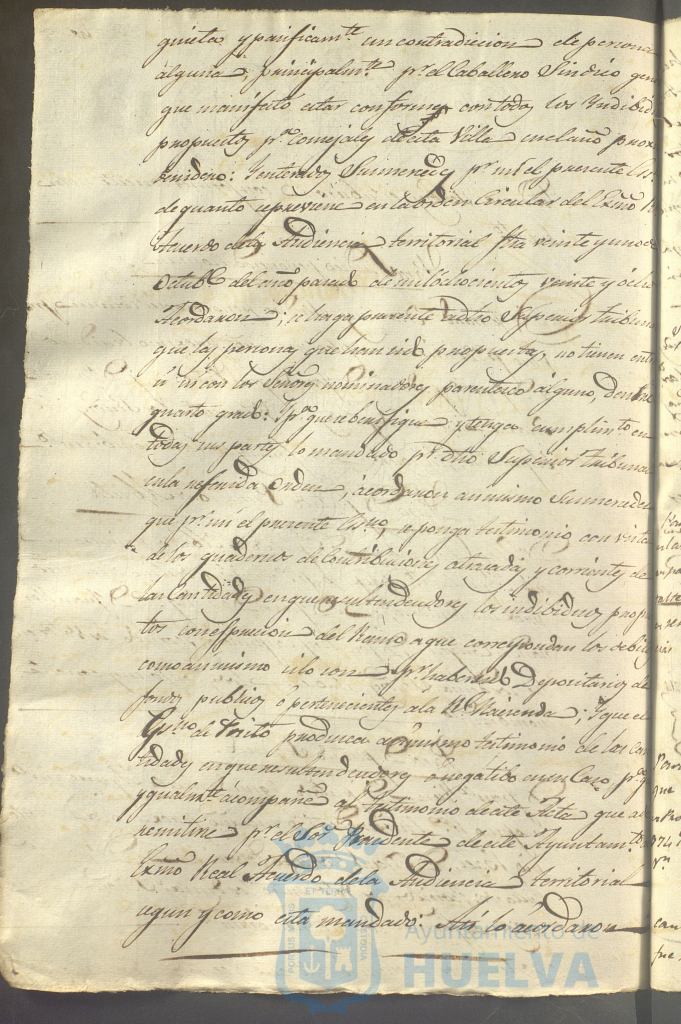 quieta y pacificamte. sin contradicion de persona
alguna, principalmte. pr. el Caballero Sindico gen
que manifestó estar conforme con todos los Indibid
propuestos pr. Comcejales de esta Villa en el año prox
benidero: Yenterados Sumercedes pr. mi el presente Es.
de quanto se previene en la orden Circular del Exmo. R
Acuerdo de la Audiencia territorial fha veinte y uno de
Octube. del año pasado de mil ochocientos veinte y ocho
Acordaron; se haga presente a dho Superior tribun
que las personas que han sido propuestas, no tienen entre
si ni con los Señores nominadores parentesco alguno, dentro
quarto grado: Ypa. que se berifique y tenga cumplimto. en
todas sus partes lo mandado pr. dho Superior tribuna
en la referida Orden, acordaron asimismo Sumercedes
que pr. mi el presente Esno, se ponga testimonio con vista
de los quadernos de Contribuciones atrasadas y corrientes de
las Cantidades en que resulten deudores los indibiduos propu
tos con espresion del Ramo a que correspondan los debitos
como asimismo si lo son pr. haber sido Depositarios de
fondos publicos ó pertenecientes á la Rl. Hacienda; Yque el
Esno de Posito produzca asimismo testimonio de las can
tidades en que resulten deudores ó negatibo en su Caso pa. q
ygualmte. acompañe al testimonio de este Acta que a
remitirse pr. el Sor. Presidente de este Ayuntamto
Exmo Real Acuerdo de la Audiencia territorial
segun y como está mandado: Asi lo acordaron
Ayuntamiento de
HUELVA